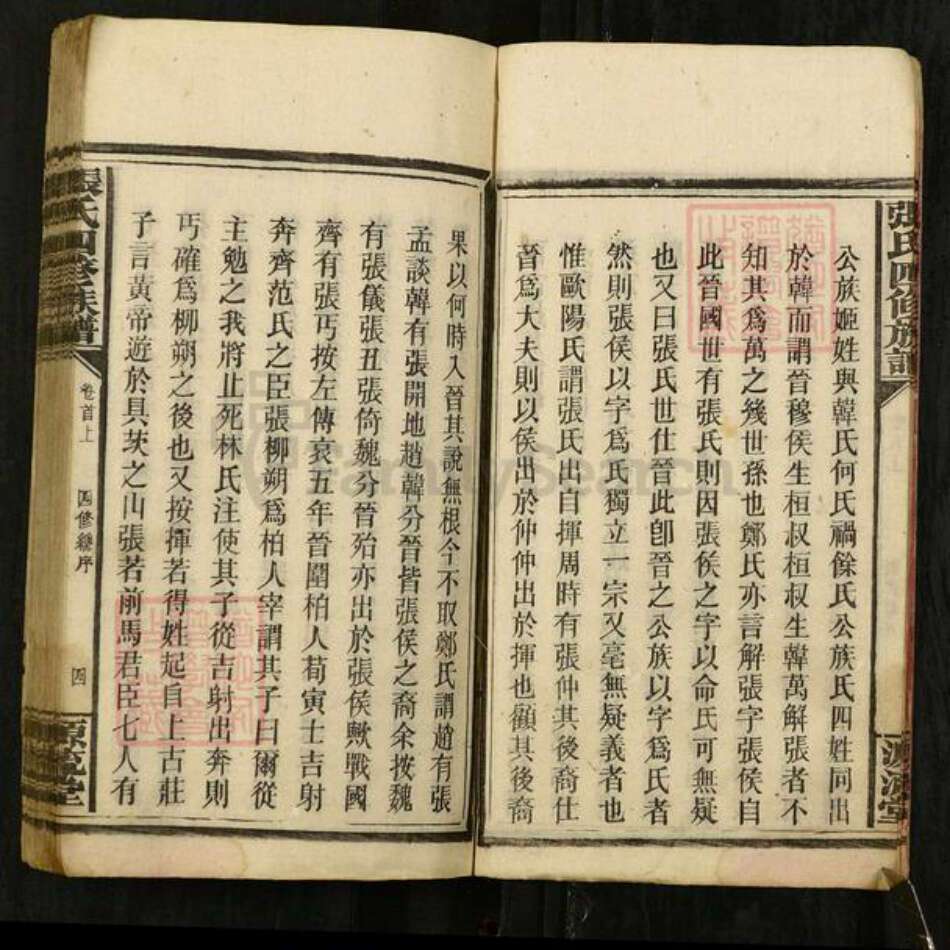 張氏四修族譜
公族姬姓與韓氏何氏禍餘氏公族氏四姓同出
於韓而謂晉穆侯生桓叔桓叔生韓萬解張者不
知其為萬之幾世孫也鄭氏亦言解張字張侯自
此晉國世有張氏則因張侯之字以命氏可無疑
也又曰張氏世仕晉此卽晉之公族以字爲氏者
然則張侯以字爲氏獨立一宗又毫無疑義者也
惟歐陽氏謂張氏出自揮周時有張仲其後裔仕
晉爲大夫則以侯出於仲仲出於揮也顧其後裔
果以何時入晉其說無根今不取鄭氏謂趙有張
孟談韓有張開地趙韓分晉皆張侯之裔余按魏
有張儀張丑張倚魏分晉殆亦出於張侯歟戰國
齊有張丐按左傳哀五年晉圍柏人荀寅士吉射
奔齊范氏之臣張柳朔爲柏人宰謂其子曰爾從
主勉之我將止死林氏注使其子從吉射出奔則
丐確爲柳朔之後也又按揮若得姓起自上古莊
子言黃帝遊於具茨之山張若前馬君臣七人有
張氏四修族譜
卷首上
四修總序
四
源流堂
FamilySearch